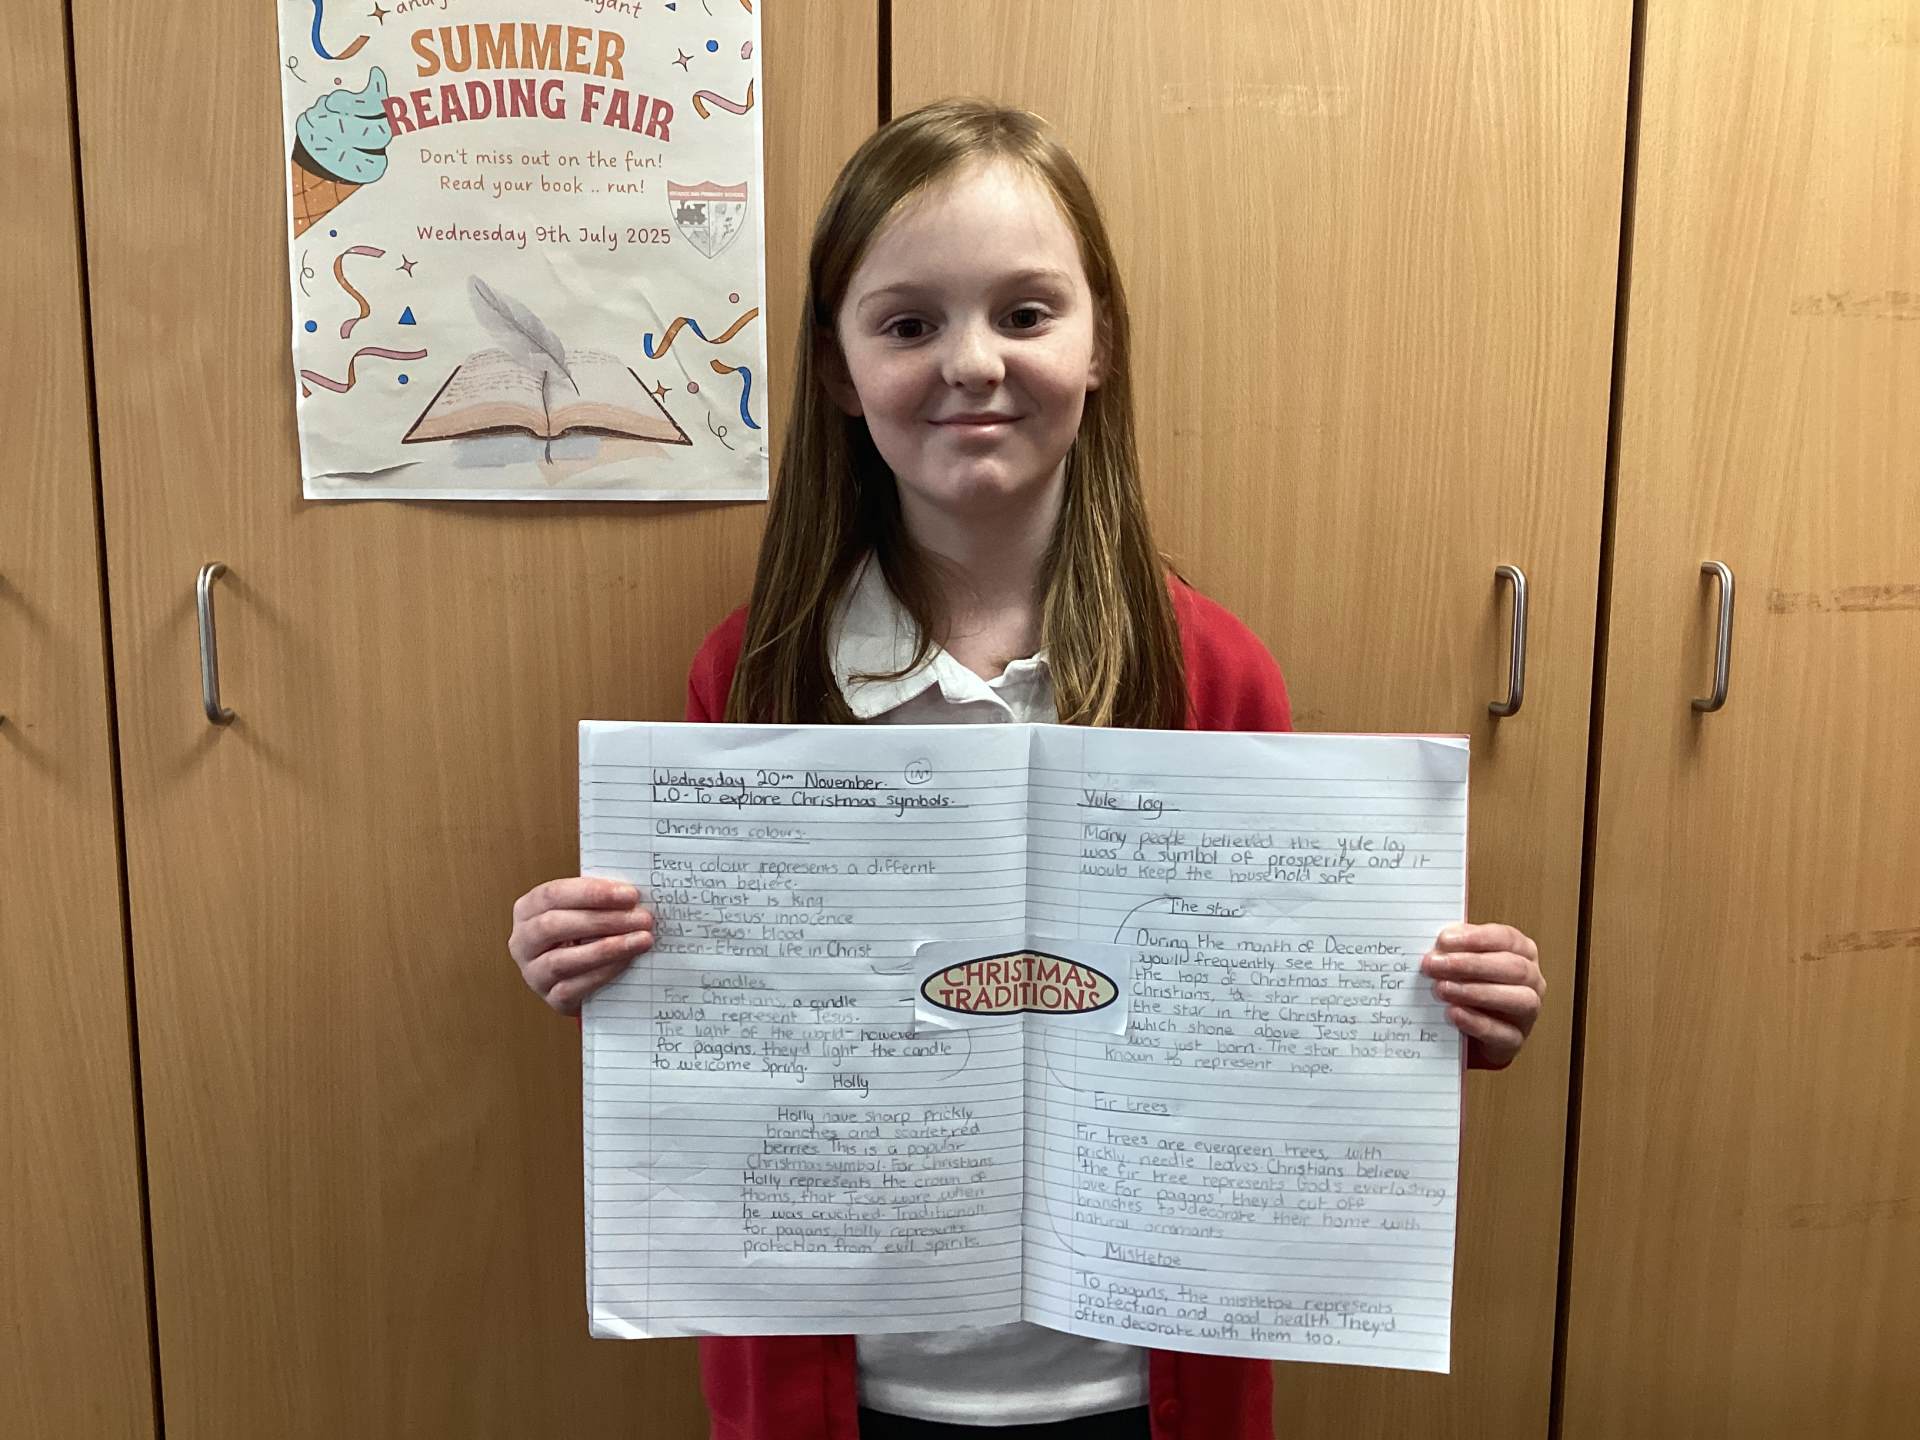 SUMMER
READING FAIR
Don't miss out on the fun!
Read your book .. run!
Wednesday 9th July 2025
PRIMARY SCHOOL
Wednesday 20th November.
L.O - To explore Christmas symbols.
Christmas colours.
Every colour represents a differnt
Christian believe.
Gold - Christ is king
White - Jesus' innocence
Red - Jesus' blood
Green - Eternal life in Christ
Candles
For Christians, a candle
would represent Jesus.
The light of the world - however
for pagans, they'd light the candle
to welcome Spring.
Holly
Holly have sharp prickly
branches and scarlet red
berries. This is a popular
Christmas symbol. For Christians
Holly represents the crown of
thorns, that Jesus wore when
he was crucified. Traditionall
for pagans, holly represents
protection from evil spirits.
CHRISTMAS
TRADITIONS
Yule log
Many people believed the yule log
was a symbol of prosperity and it
would keep the household safe
The star
During the month of December,
you'll frequently see the star at
the tops of Christmas trees. For
Christians, star represents
the star in the Christmas story,
which shone above Jesus when he
was just born. The star has been
known to represent hope.
Fir trees
Fir trees are evergreen trees, with
prickly, needle leaves. Christians believe
the fir tree represents God's everlasting
love. For pagans, they'd cut off
branches to decorate their home with
natural
Mistletoe
To pagans, the mistletoe represents
protection and good health. They'd
often decorate with them too.